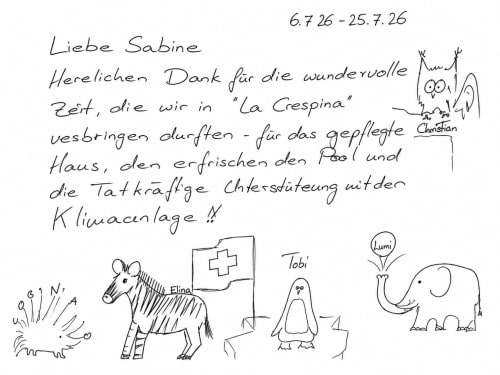 6.7 26 - 25.7. 26
Liebe Sabine
Herzlichen Dank für die wundervolle
Zeit, die wir in "La Crespina"
verbringen durften - für das gepflegte
Haus, den erfrischenden Pool und
die Tatkräftige Unterstützung mit der
Klimaanlage !!
Christian
Elina
Tobi
Lumi